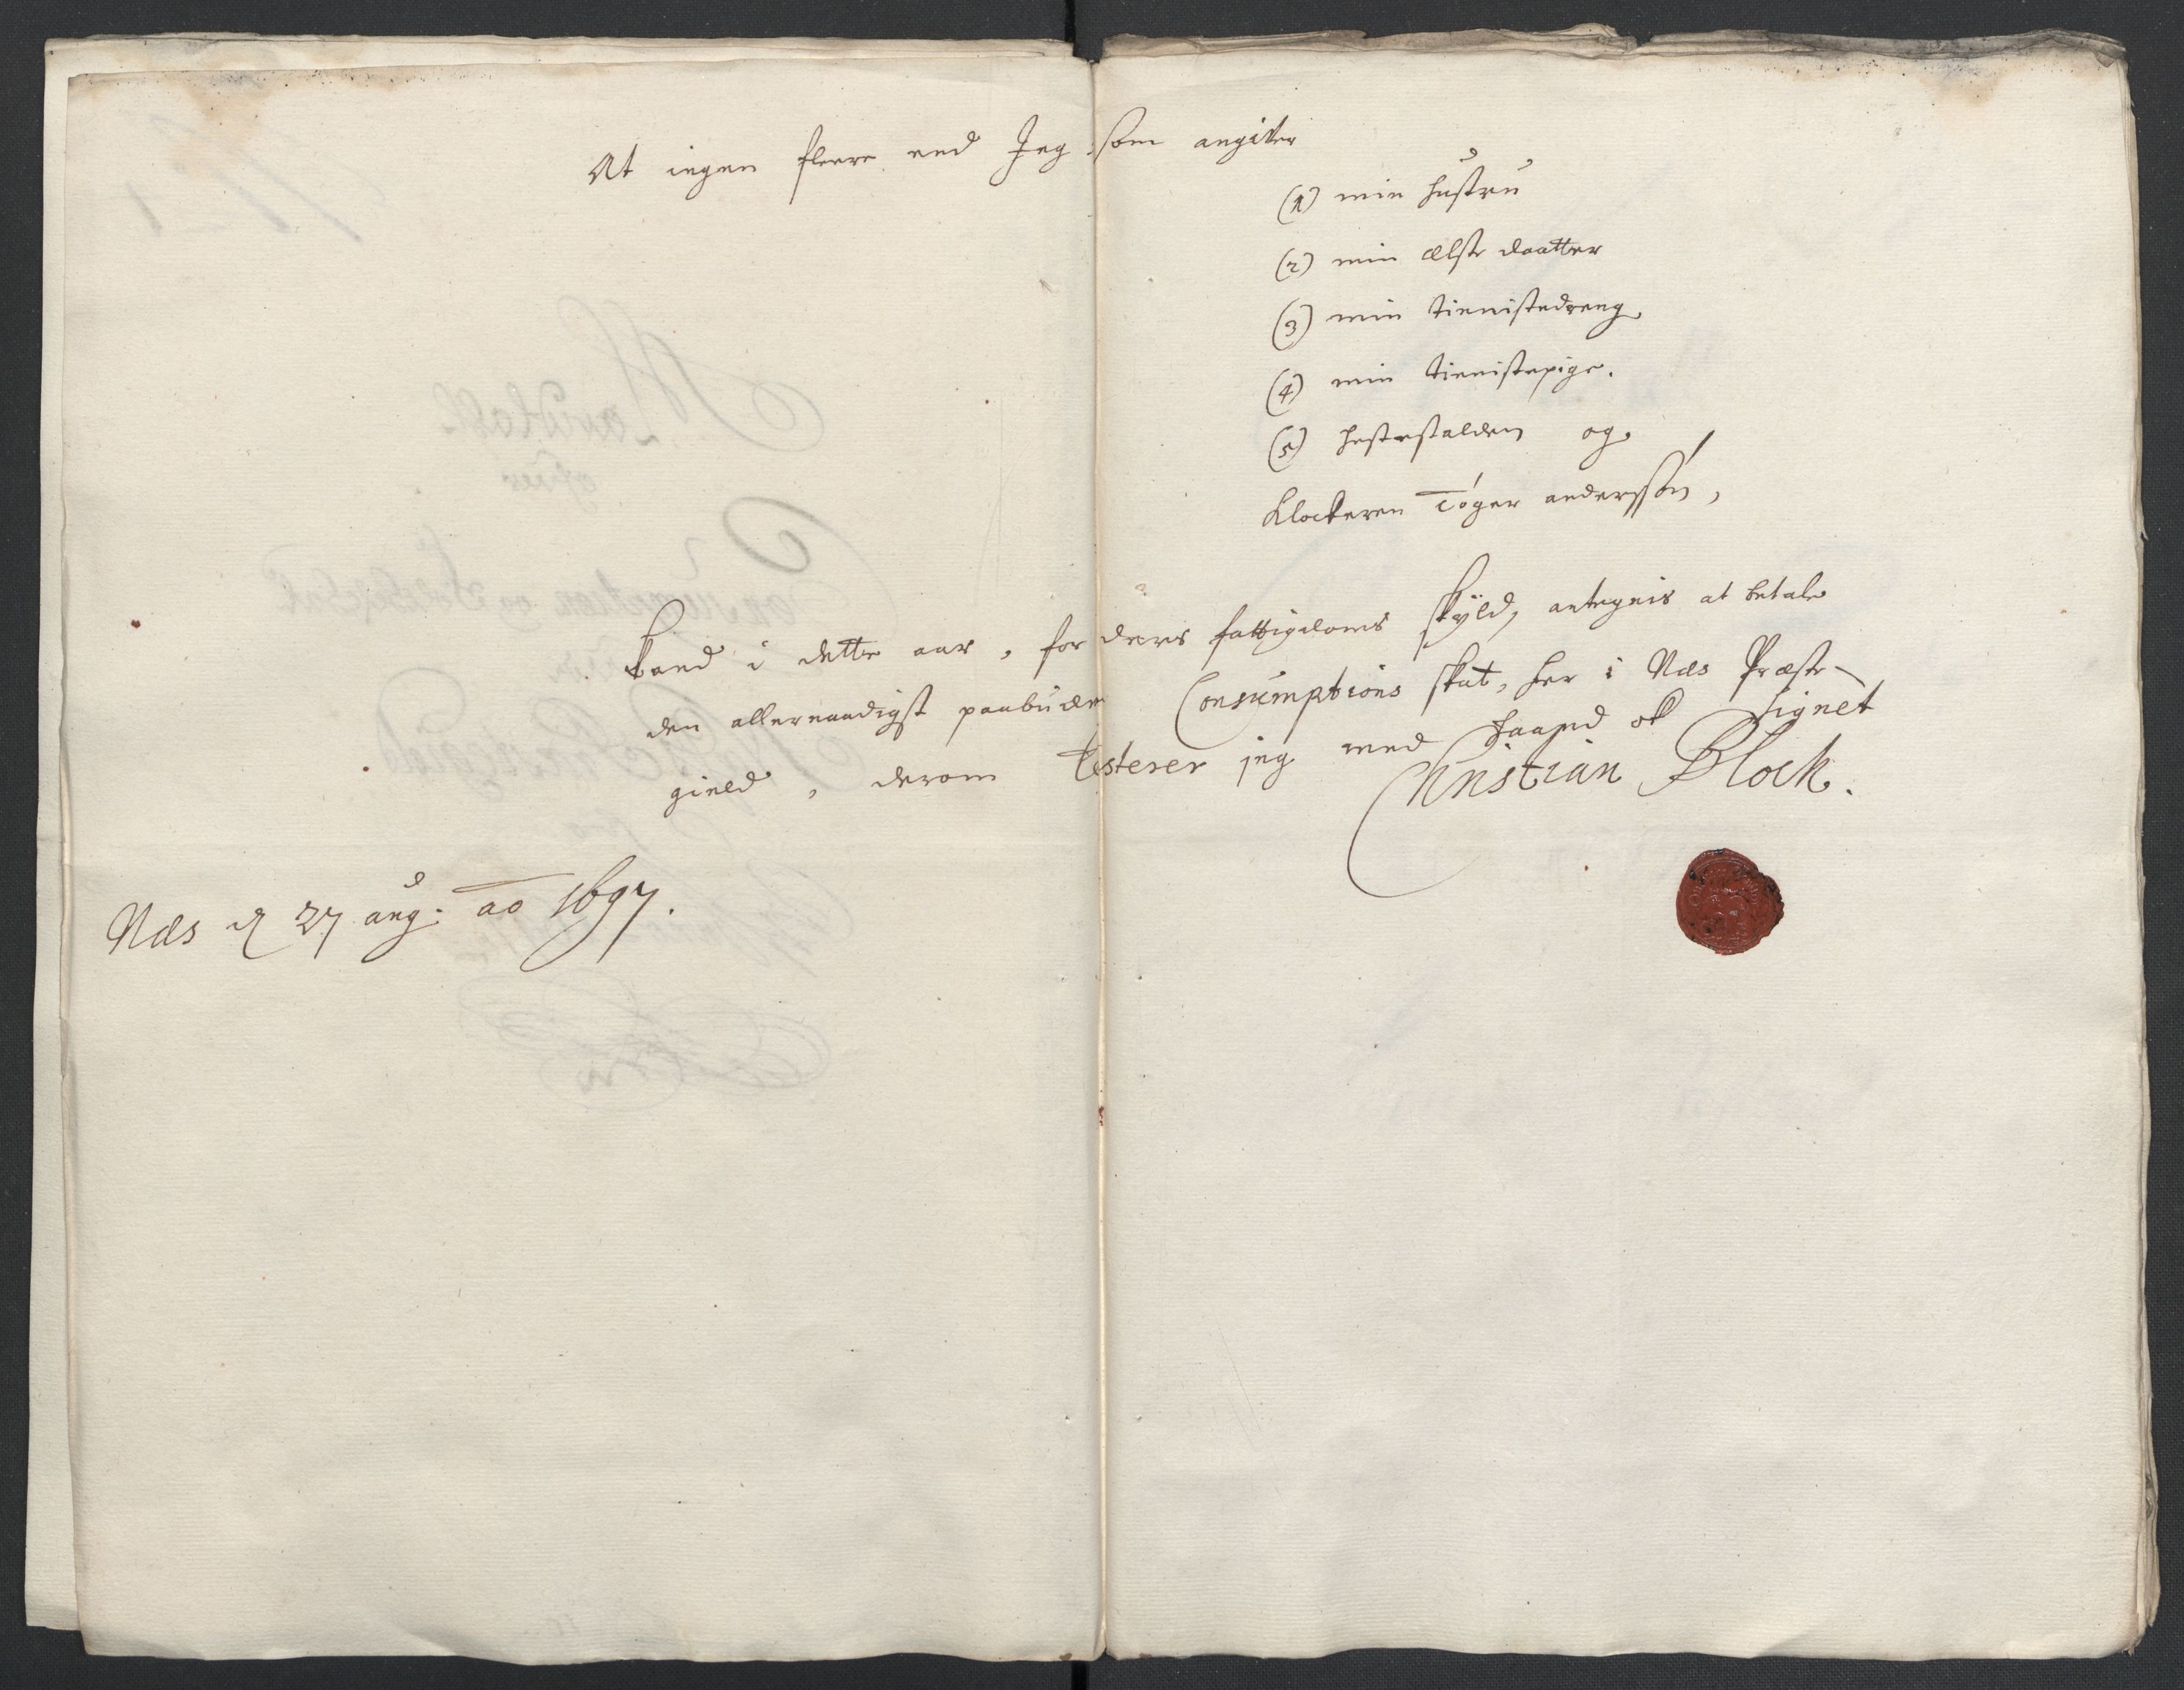 At ingen fleere end Jeg som angifver
(1) min hustru
(2) min ælste daatter
(3) min tienistedreng
(4) min tienistepige.
(5) hestestalden og
Klockeren Töger anderssön,
kand i dette aar, for deres fattigdoms skyld, antegnis at betale
den allernaadigst paabudne Consumptions skat, her i Næs Præste-
gield, derom testerer jeg med haand ok signet
Christian Block.
Næs d 27 aug: ao 1697.